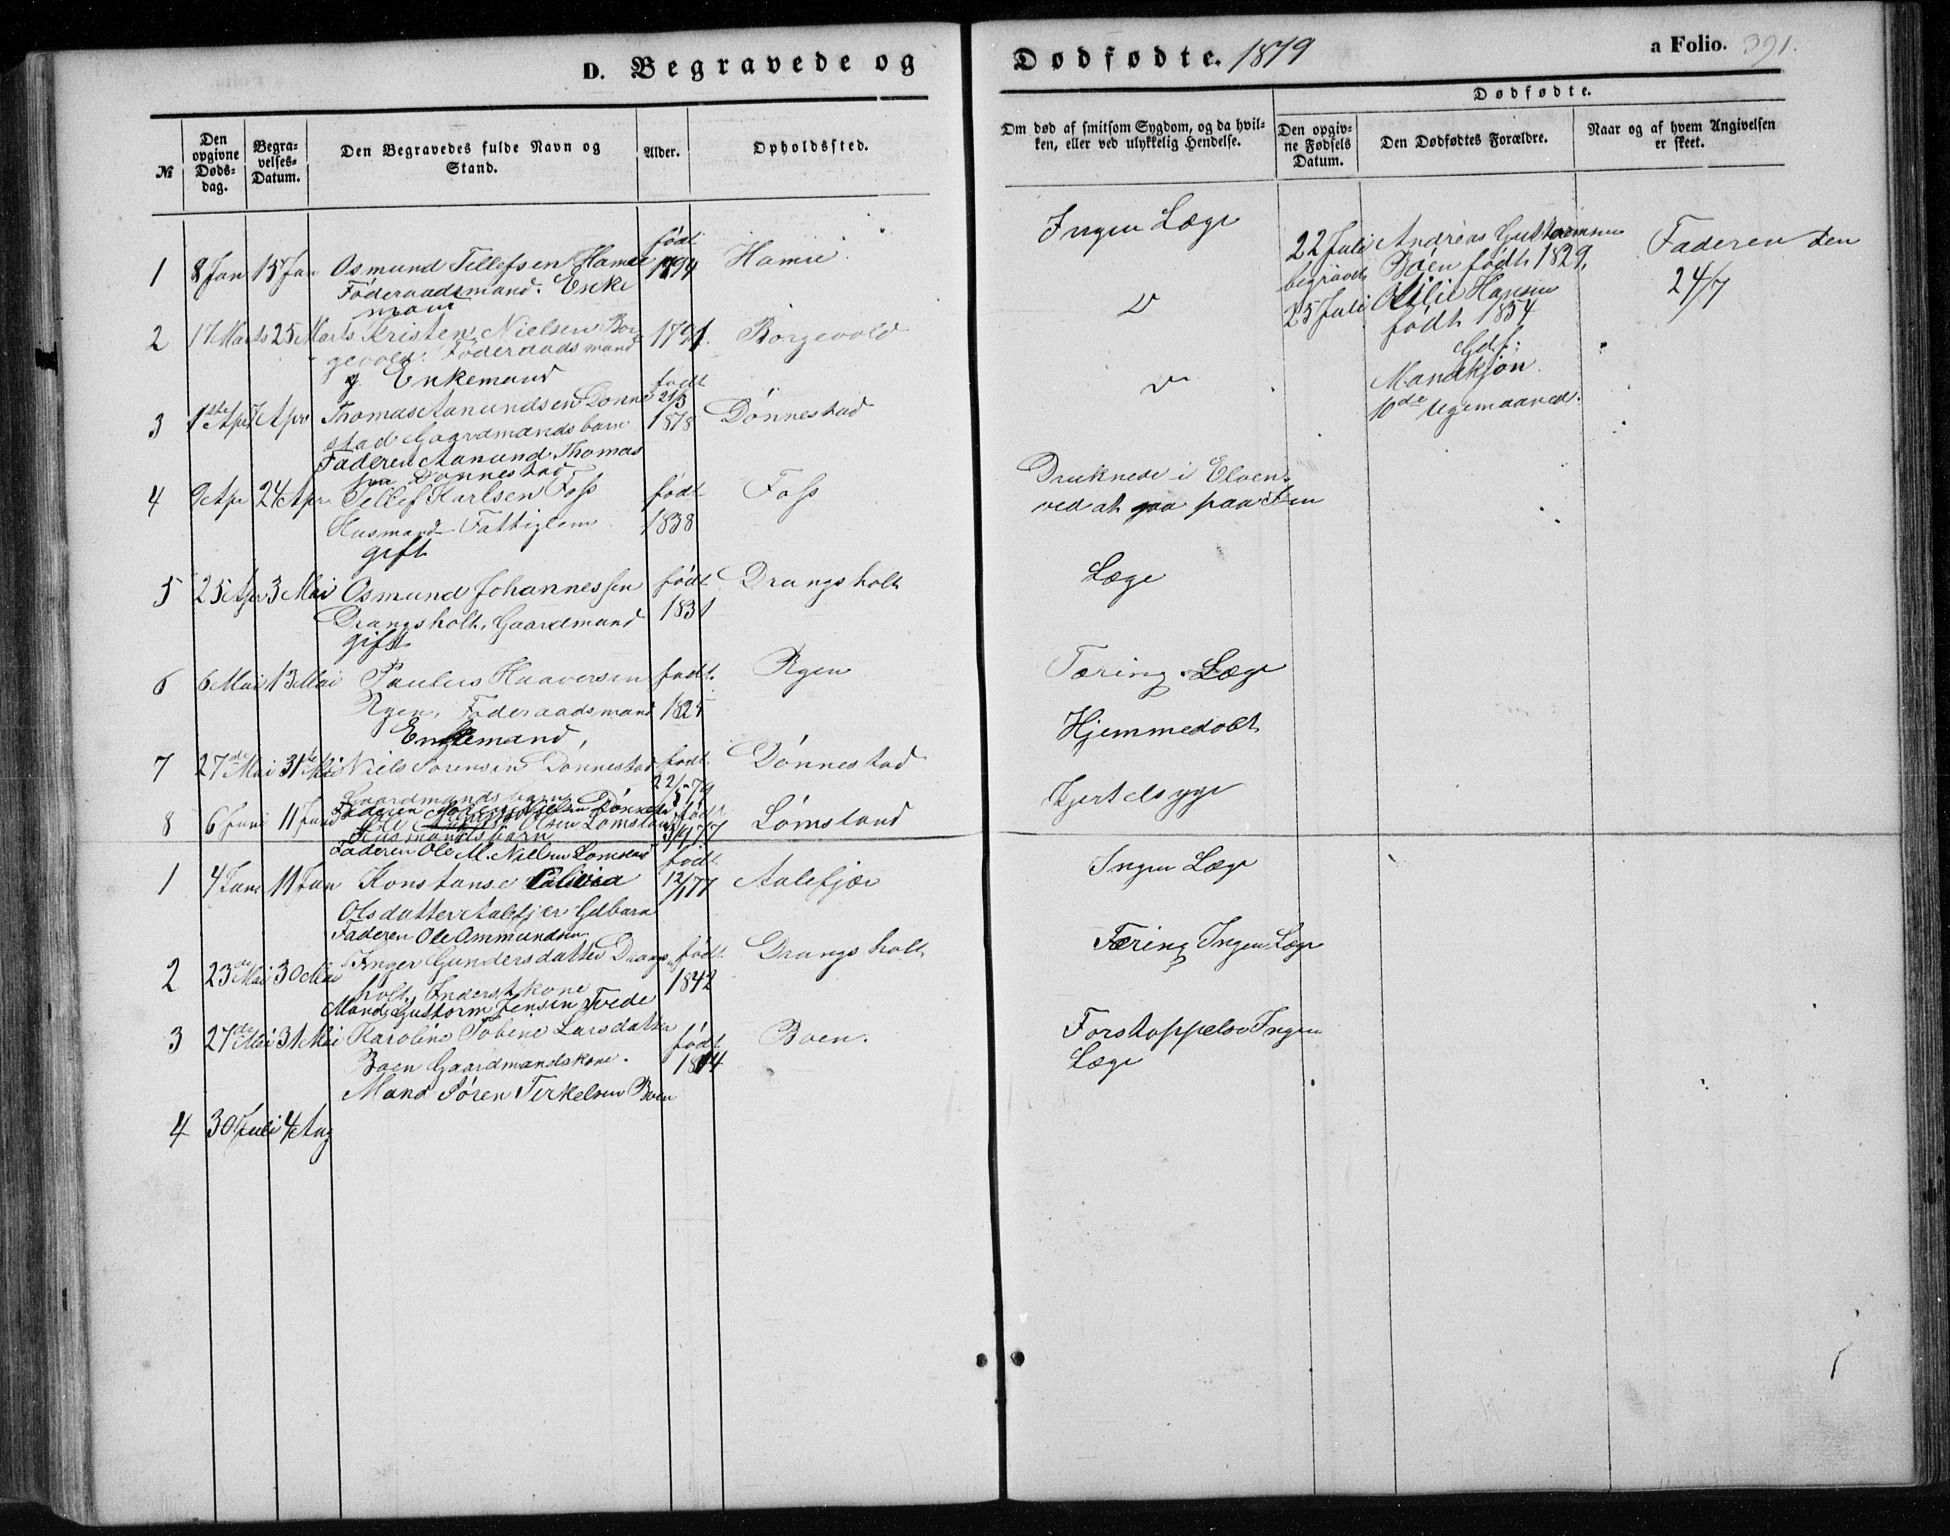 D. Begravede og Dødfødte. 1879
a Folio. 391.
№
Den opgivne Døds-dag.
Begra-velses-Datum.
Den Begravedes fulde Navn og Stand.
Alder.
Opholdssted.
Om død af smitsom Sygdom, og da hvil-ken, eller ved ulykkelig Hendelse.
Dødfødte.
Den opgiv-ne Fødsels Datum.
Den Dødfødtes Forældre.
Naar og af hvem Angivelsen er skeet.
1 8 Jan 15 Jan Osmund Tellefsen Hamre født 1794 Hamre Ingen Læge
Føderaadsmand. Enke
mand
2 17 Marts 25 Marts Kristen Nielsen Bor 1791. Borgevold v
gevold. Føderaadsmand
g Enkemand
3 1ste Apr 7 Apr Thomas Aanundsen Dønne født 21/3 1878 Dønnestad v
stad Gaardmandsbarn
Faderen Aanund Thomas
sen Dønnestad
4 9 Apr 24 Apr Tellef Karlsen Foss født 1838 Foss Druknede i Elven
Husmand Fattiglem ved at gaa paa Isen
gift
5 25 Apr 3 Mai Osmund Johannessen født 1831 Drangsholt Læge
Drangsholt, Gaardmand
gift
6 6 Mai 13 Mai Paulus Haaversen født 1825 Ryen Tæring. Læge
Ryen, Føderaadsmand
Enkemand,
7 27de Mai 31te Mai Niels Sørensen Dønnestad født 22/5 79 Dønnestad Hjemmedøbt
Gaardmandsbarn
Faderen Nielsen Dønnestad
8 6 Juni 11 Juni Olsen Lømsland født 77 Lømsland Kjertelsyge
Husmandsbarn
Faderen Ole M. Nielsen Lømsland
1 4 Jan 11 Jan Konstanse Olivia født 12/1 77 Aalefjær Ingen Læge
Olsdatter Aalefjer Gdbarn
Faderen Ole Ommundsen
2 23de Mai 30 Mai Inger Gundersdatter Drangs født 1842 Drangsholt Tæring Ingen Læge
holt, Inderstkone
Mand Guttorm Jensen Tvede
3 27de Mai 31 Mai Karoline Tobine Larsdatter født Boen. Forstoppelse Ingen
Boen Gaardmandskone. Læge
Mand Søren Terkelsen Boen
4 30 Juli 4 Aug
22 Juli Andreas Guttormsen Faderen den
begravet Boen født 1829, 24/7
25 Juli Hansen
født 1854
Gdf:
Mandkjøn
10de Ugemaaned.